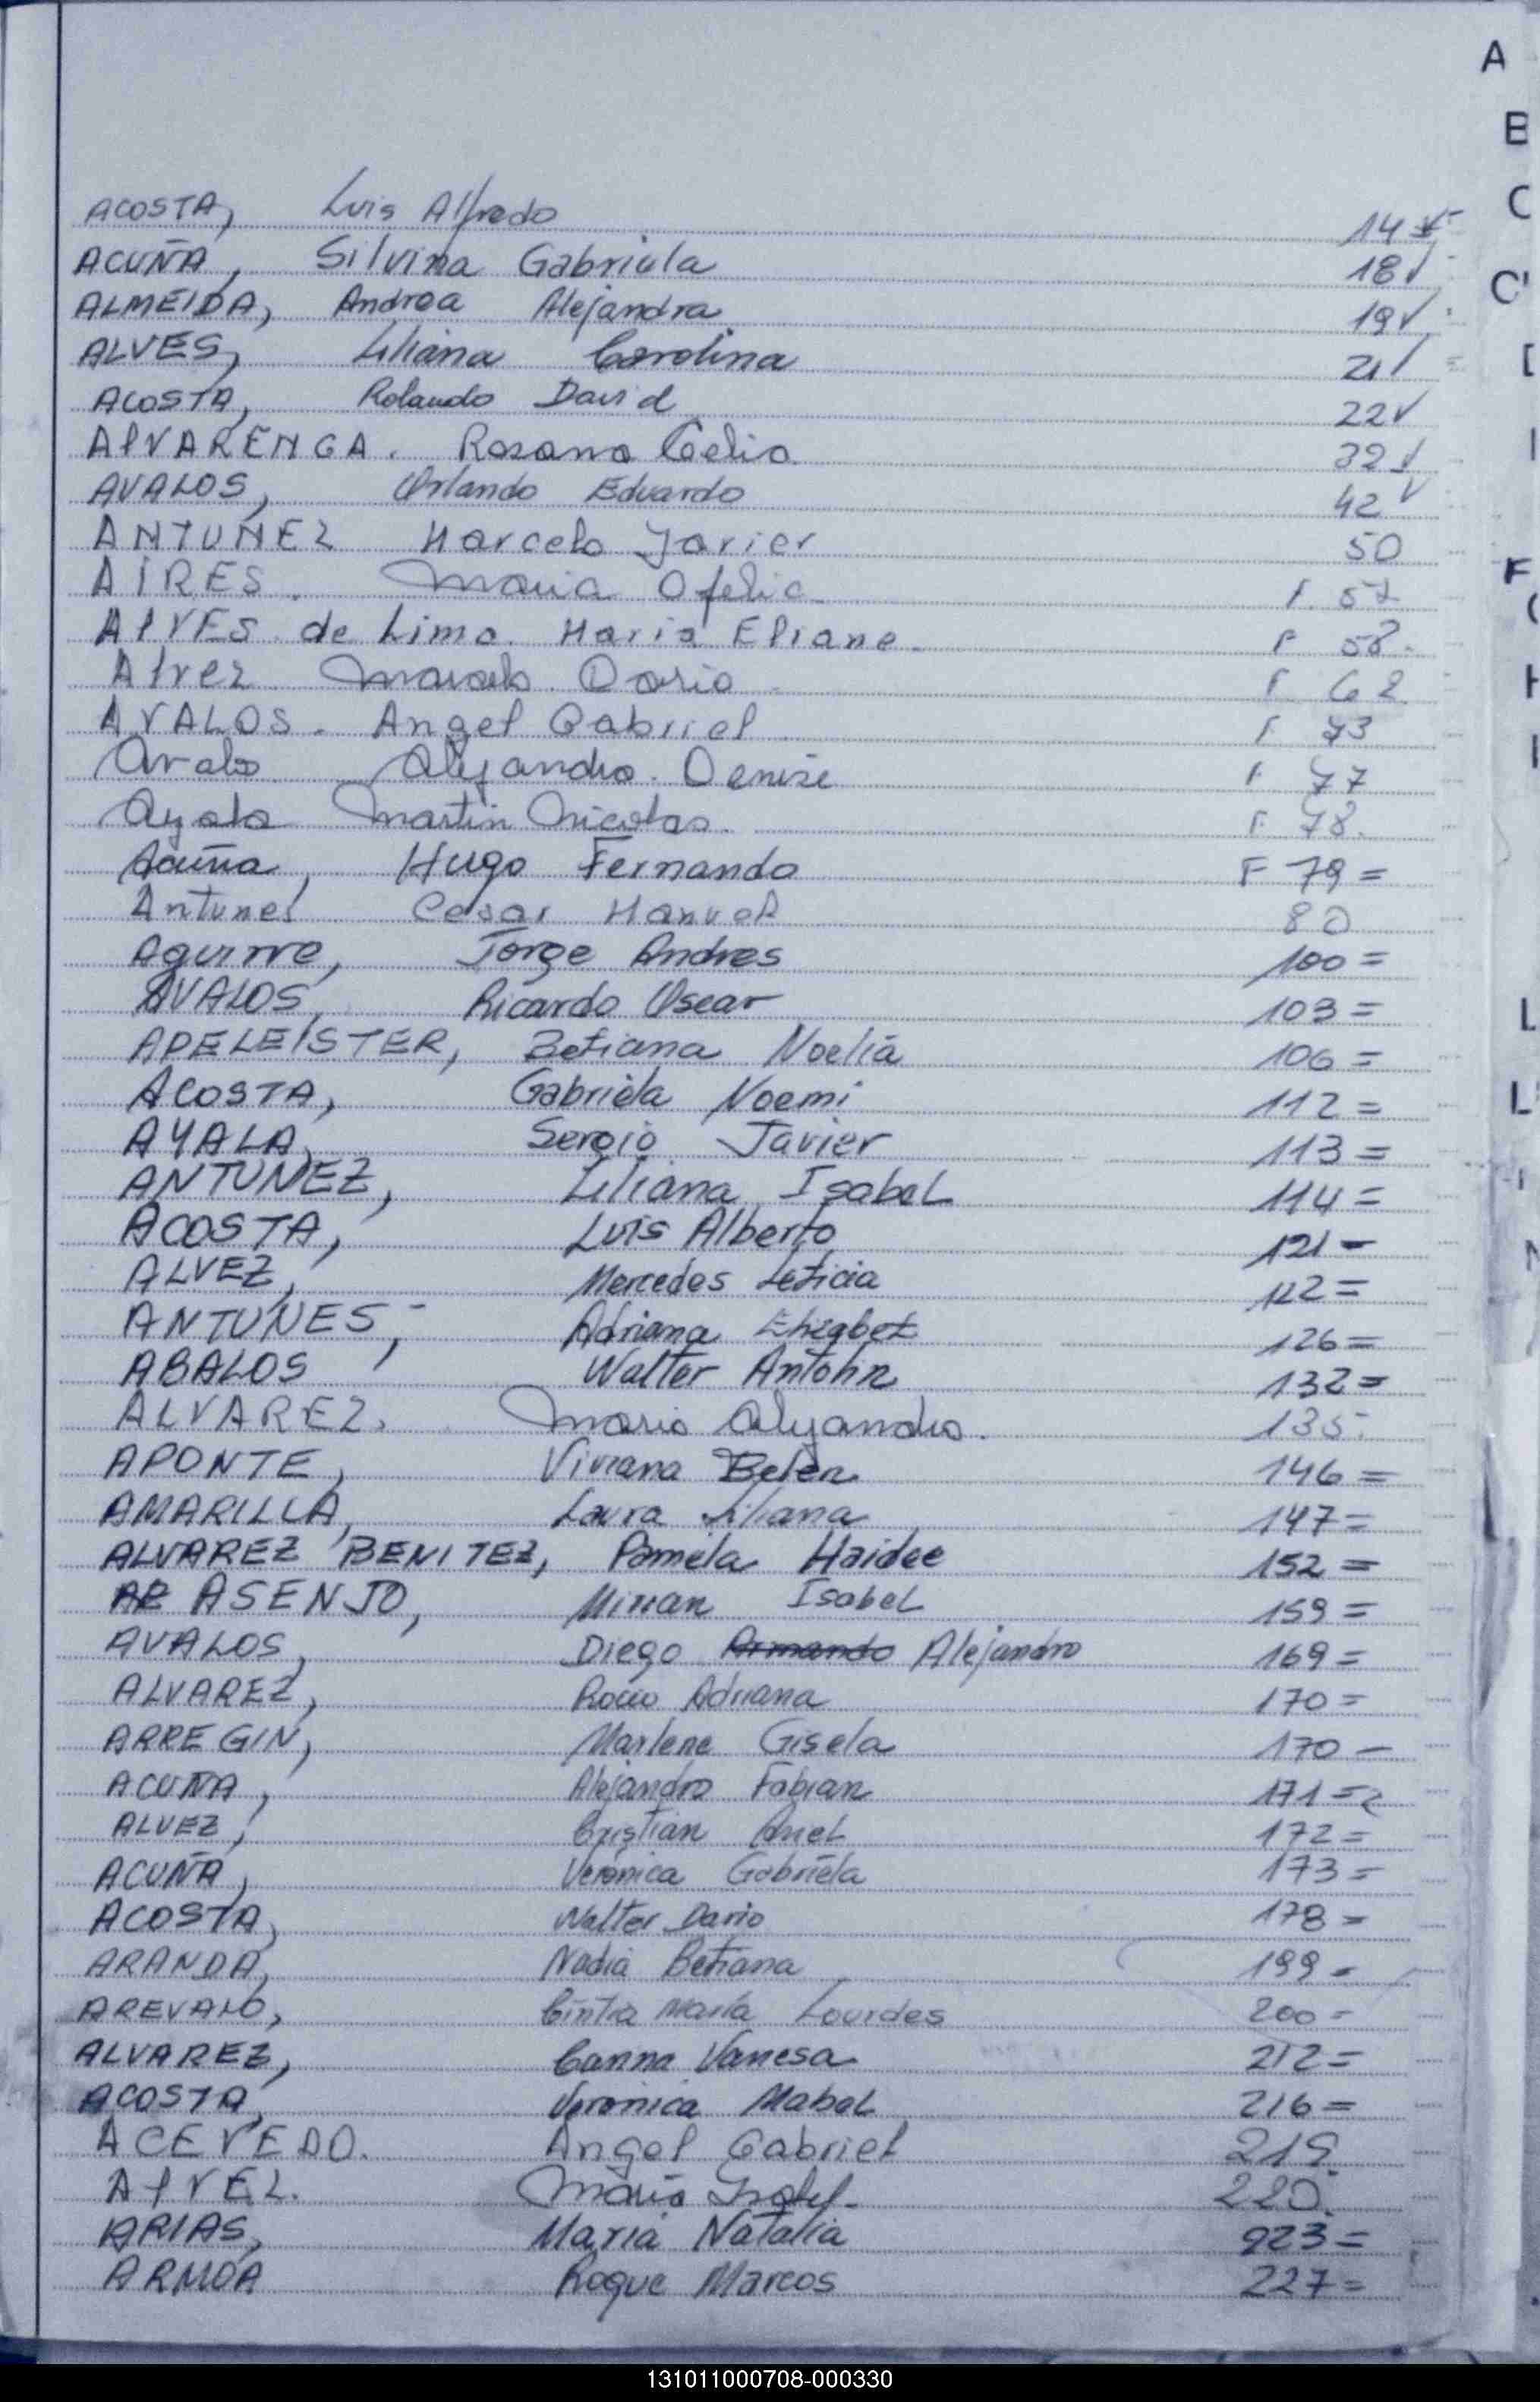 A
B
C
ACOSTA, Luis Alfredo 14
ACUÑA, Silvina Gabriela 18✓
ALMEIDA, Andrea Alejandra 19✓
ALVES, Liliana Carolina 21✓
ACOSTA, Rolando David 22✓
AlVARENGA. Rosana Celia 32✓
AVALOS, Orlando Eduardo 42✓
ANTUNEZ Marcelo Javier 50
AIRES. Maria Ofelia F. 57
AlVES de Lima. Maria Eliane. F 58.
Alvez Marcelo Dario. F 62
AVALOS. Angel Gabriel F 73
Avalos Alejandra. Denise F 77
Ayala Martin Nicolas. F. 78.
Acuña, Hugo Fernando F 79=
Antunes Cesar Manuel 80
Aguirre, Jorge Andres 100=
AVALOS, Ricardo Oscar 103=
APELEISTER, Betiana Noelia 106=
ACOSTA, Gabriela Noemi 112=
AYALA, Sergio Javier 113=
ANTUNEZ, Liliana Isabel 114=
ACOSTA, Luis Alberto 121=
ALVEZ, Mercedes Leticia 122=
ANTUNES, Adriana 126=
ABALOS Walter 132=
ALVAREZ. Mario Alejandro. 135.
APONTE, Viviana Belen 146=
AMARILLA, Laura Liliana 147=
ALVAREZ BENITEZ, Pamela Haidee 152=
ASENJO, Mirian Isabel 159=
AVALOS, Diego Armando Alejandro 169=
ALVAREZ, Rocio Adriana 170=
ARREGIN, Marlene Gisela 170-
ACUÑA, Alejandro Fabian 171=
ALVEZ, Cristian Ariel 172=
ACUÑA, Veronica Gabriela 173=
ACOSTA, Walter Dario 178=
ARANDA, Nadia Betiana 199=
AREVALO, Cintia Maria Lourdes 200=
ALVAREZ, Vanesa 212=
ACOSTA, Veronica Mabel 216=
ACEVEDO. Angel Gabriel 219.
AlVEZ. Maria 220.
ARIAS, Maria Natalia 223=
ARMOA Roque Marcos 227=
131011000708-000330